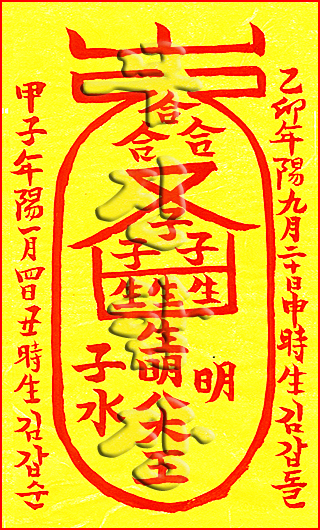 乙卯年陽九月二十日申時生김갑돌
合
合合
子
子子
生生生
生明
大王
明
子水
甲子年陽一月四日丑時生김갑순